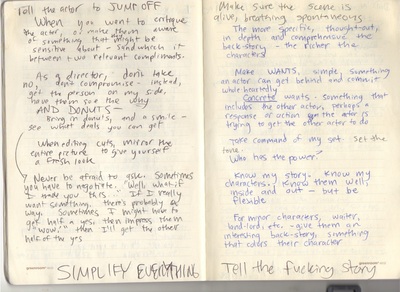 Tell the actor to JUMP OFF
When you want to critique
the actor or make them aware
of something that might be
sensitive about - sandwich it
between two relevant compliments.
As a director, don't take
no, and compromise - instead,
get the person on my side,
have them see the why
AND DONUTS -
Bring in donuts, and a smile -
see what deals you can get
When editing cuts, mirror the
entire picture to give yourself
a fresh look
Never be afraid to give. Sometimes
you have to negotiate. "Well, what if
I gave you this." If I really
want something, there's probably a
way. Sometimes I might have to
get half a yes, then impress them
"wow," then I'll get the other
half of the yes
SIMPLIFY EVERYTHING
Make sure the scene is
alive, breathing spontaneous
The more specific, thought-out,
in depth and comprehensive the
back-story - the richer the
character
Make WANTS, simple. Something
an actor can get behind and commit
whole heartedly
Concrete wants. Something that
includes the other actor, perhaps a
response or action the actor is
trying to get the other actor to do
Take command of my set. Set the
tone.
Who has the power?
Know my story. Know my
characters. Know them well,
inside and out - but be
flexible
For minor characters, waiter,
landlord, etc. - give them an
interesting back-story, something
that colors their character
Tell the fucking story